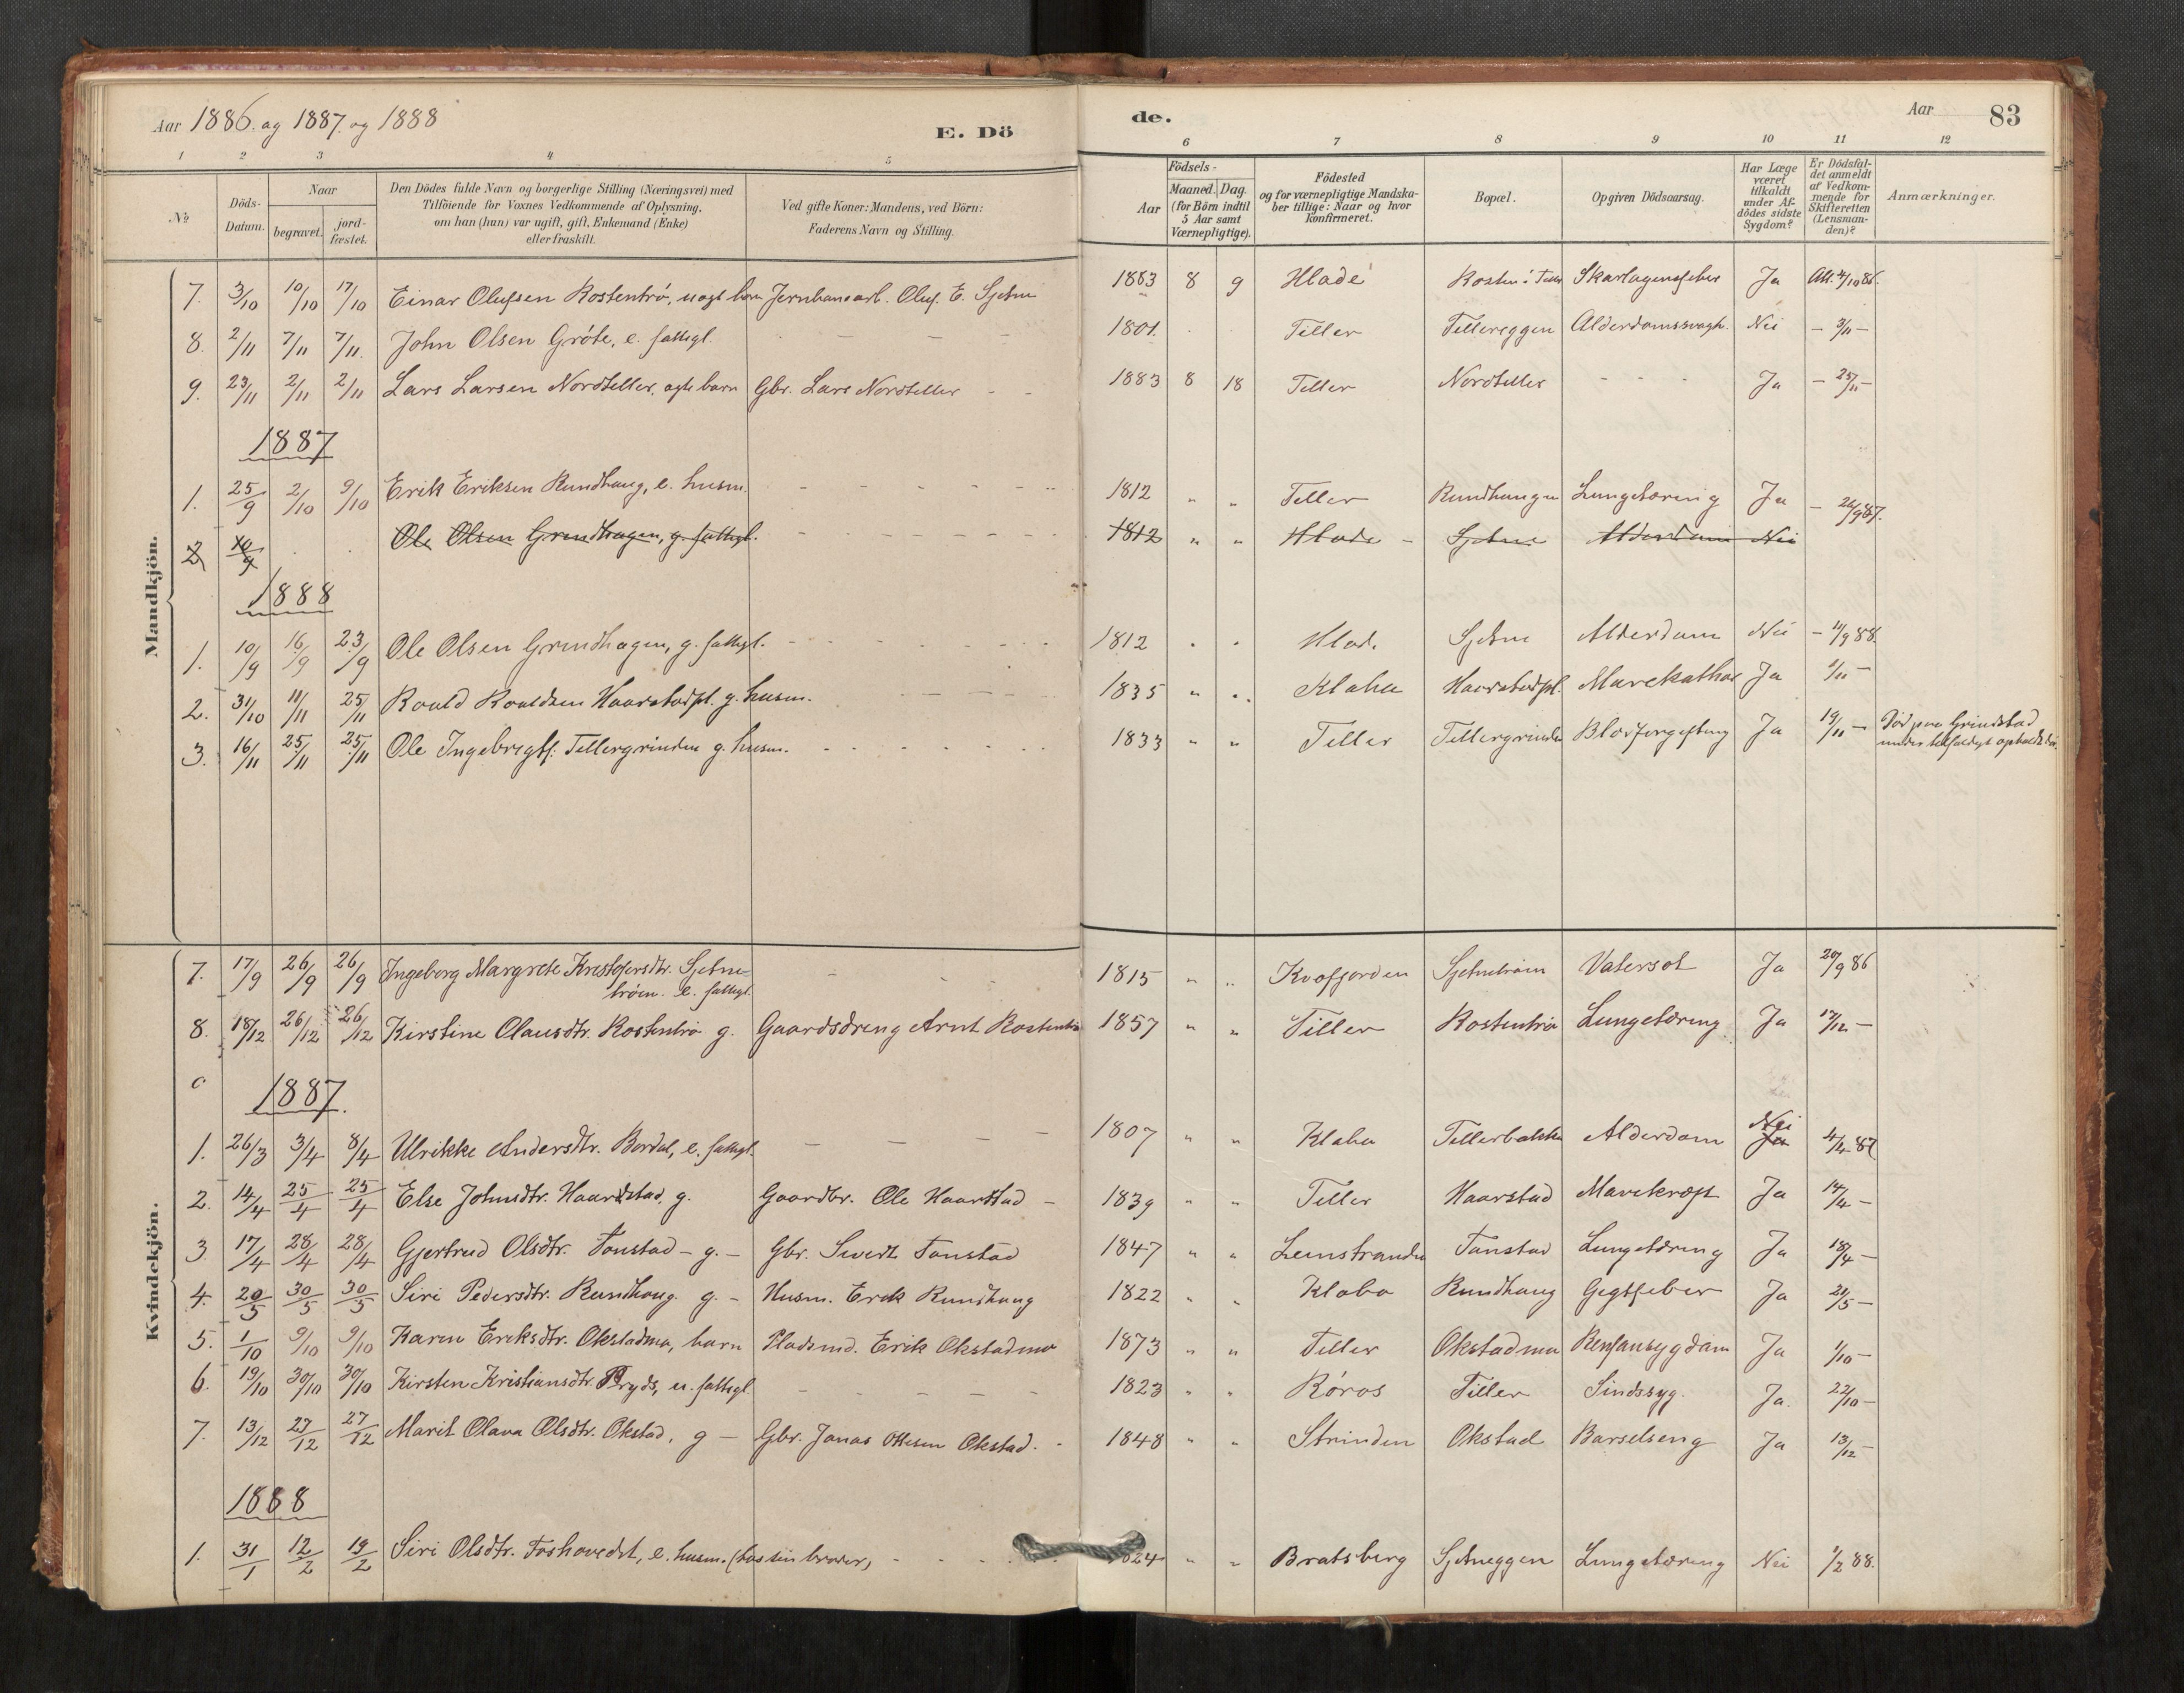 Aar 1886. og 1887. og 1888
E. Dö
de.
Aar
83
1 2 3 4 5 6 7 8 9 10 11 12
No
Döds-Datum.
Naar
begravet.
jord-fæstet.
Den Dödes fulde Navn og borgerlige Stilling (Næringsvei) med
Tilföiende for Voxnes Vedkommende af Oplysning,
om han (hun) var ugift, gift, Enkemand (Enke)
eller fraskilt.
Ved gifte Koner: Mandens, ved Börn:
Faderens Navn og Stilling.
Födsels-
Aar
Maaned. Dag.
(for Börn indtil
5 Aar samt
Værnepligtige).
Födested
og for værnepligtige Mandska-
ber tillige: Naar og hvor
konfirmeret.
Bopæl.
Opgiven Dödsaarsag.
Har Læge
været
tilkaldt
under Af-
dödes sidste
Sygdom?
Er Dödsfal-
det anmeldt
af Vedkom-
mende for
Skifteretten
(Lensman-
den)?
Anmærkninger.
Mandkjön.
7. 3/10 10/10 17/10 Einar Olufsen Rostentrø, uægt barn Jernbanearb. Oluf E. Sjetne 1883 8 9 Hlade Rosten i Tiller Skarlagensfeber Ja Att. 4/10 86.
8. 2/11 7/11 7/11. John Olsen Grøte, e. fattigl. - - - 1801. Tiller Tillereggen Alderdomssvagh. Nei - 3/11 -
9. 23/11 2/11 2/11 Lars Larsen Nordtiller, ægte barn Gbr. Lars Nordtiller - - 1883 8 18 Tiller Nordtiller - - - Ja - 25/11 -
1887
1. 25/9 2/10 9/10 Erik Eriksen Rundhaug, e. husm. - - - - - 1812 " " Tiller Rundhaugen Lungetæring Ja - 26/9 87.
2 10/9 Ole Olsen Grindhagen, g. fattigl. - - - - - - 1812 " " Hlade - Sjetne Alderdom Nei
1888
1. 10/9 16/9 23/9 Ole Olsen Grindhagen, g. fattigl. - - - - - 1812 " " Hlade Sjetne Alderdom Nei - 11/9 88.
2. 31/10 11/11 25/11 Roald Roaldsen Haarstadpl. g. husm. - - - - 1835 " " Klæbu Haarstadpl. Mavekathar Ja 1/11 -
3. 16/11 25/11 25/11 Ole Ingebrigts. Tillergrinden g. husm. - - - - - - 1833 " " Tiller Tillergrinden Blodforgiftning Ja 19/11 - Död paa Grindstad
under tilfældigt ophold der.
Kvindekjön.
7. 17/9 26/9 26/9 Ingeborg Margrete Kristofersdtr. Sjetne-
trøen. e. fattigl. - - - 1815 " " Kvæfjorden Sjetnetrøen Vatersot Ja 20/9 86
8. 18/12 26/12 26/12 Kirstine Olausdtr. Rostentrø g. Gaardsdreng Arnt Rostentrø 1857 " " Tiller Rostentrø Lungetæring Ja 17/12 -
1887.
1. 26/3 3/4 8/4 Ulrikke Andersdtr. Bordal, e. fattigl. - - - - 1807 " " Klæbu Tillerbakken Alderdom Nei Ja 4/4 87
2. 14/4 25/4 25/4 Else Johnsdtr. Haarstad, g. Gaardbr. Ole Haarstad - 1839 " " Tiller Haarstad Mavekræft Ja 14/4 -
3. 17/4 28/4 28/4 Gjertrud Olsdtr. Tonstad - g. - Gbr. Sivert Tonstad 1847 " " Leinstranden Tonstad Lungetæring Ja 18/4 -
4. 20/5 30/5 30/5 Siri Pedersdtr. Rundhaug g. - Husm. Erik Rundhaug 1822 " " Klæbu Rundhaug Gigtfeber Ja 21/5 -
5. 1/10 9/10 9/10 Karen Eriksdtr. Okstadmo, barn Pladsmd. Erik Okstadmo 1873 " " Tiller Okstadmo Ja 1/10 -
6. 19/10 30/10 30/10 Kirsten Kristiansdtr. Pryds, u. fattigl. - - - - - 1823 " " Røros Tiller Sindssyg. Ja. 22/10 -
7. 13/12 27/12 27/12 Marit Olava Olsdtr. Okstad, g - Gbr. Jonas Ottesen Okstad. - 1848 " " Strinden Okstad Barselseng Ja 13/12 -
1888
1. 31/1 12/2 19/2 Siri Olsdtr. Foshovedet, e. husm. (hos sin broder) - - - 1824 " " Bratsberg Sjetneggen Lungetæring Nei 1/2 88.